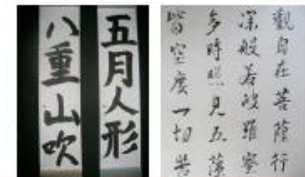 五月人形
八重山吹
觀自在菩薩行
深般若波羅蜜
多時照見五蘊
皆空度一切苦